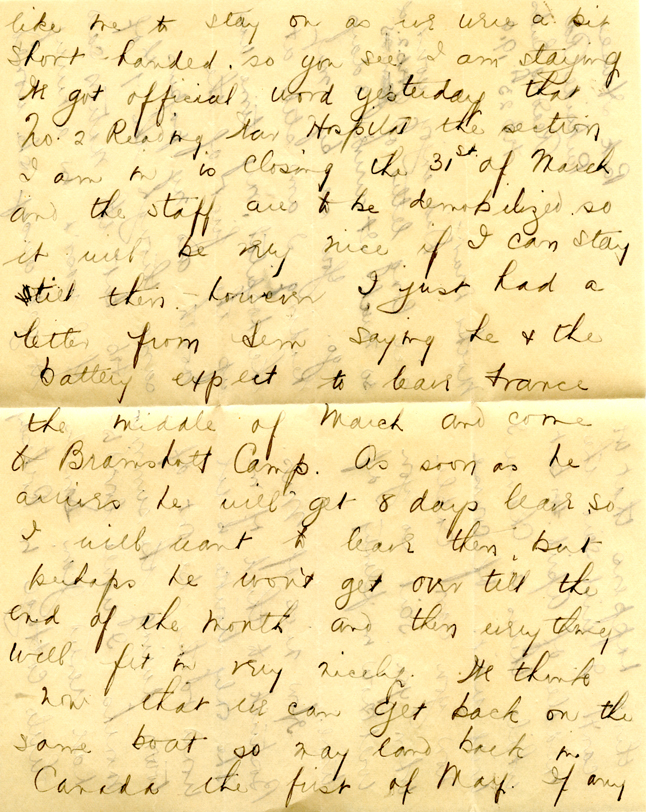 like me to stay on as we were a bit
short handed. so you see I am staying
We got official word yesterday that
No. 2 Reading War Hospital the section
I am in is closing the 31st of March
and the staff are to be demobilized. so
it will be very nice if I can stay
till then. however I just had a
letter from saying he & the
battery expect to leave France
the middle of March and come
to Bramshott Camp. As soon as he
arrives he will get 8 days leave, so
I will want to leave then, but
perhaps he won't get over till the
end of the month and then everything
will fit in very nicely. He thinks
now that we can get back on the
same boat so may land back in
Canada the first of May. If any